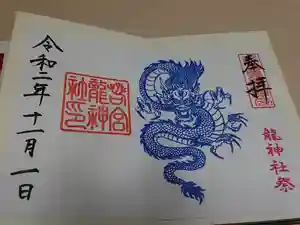 奉拝
龍神社祭
宮
龍神
社印
令和二年十一月一日